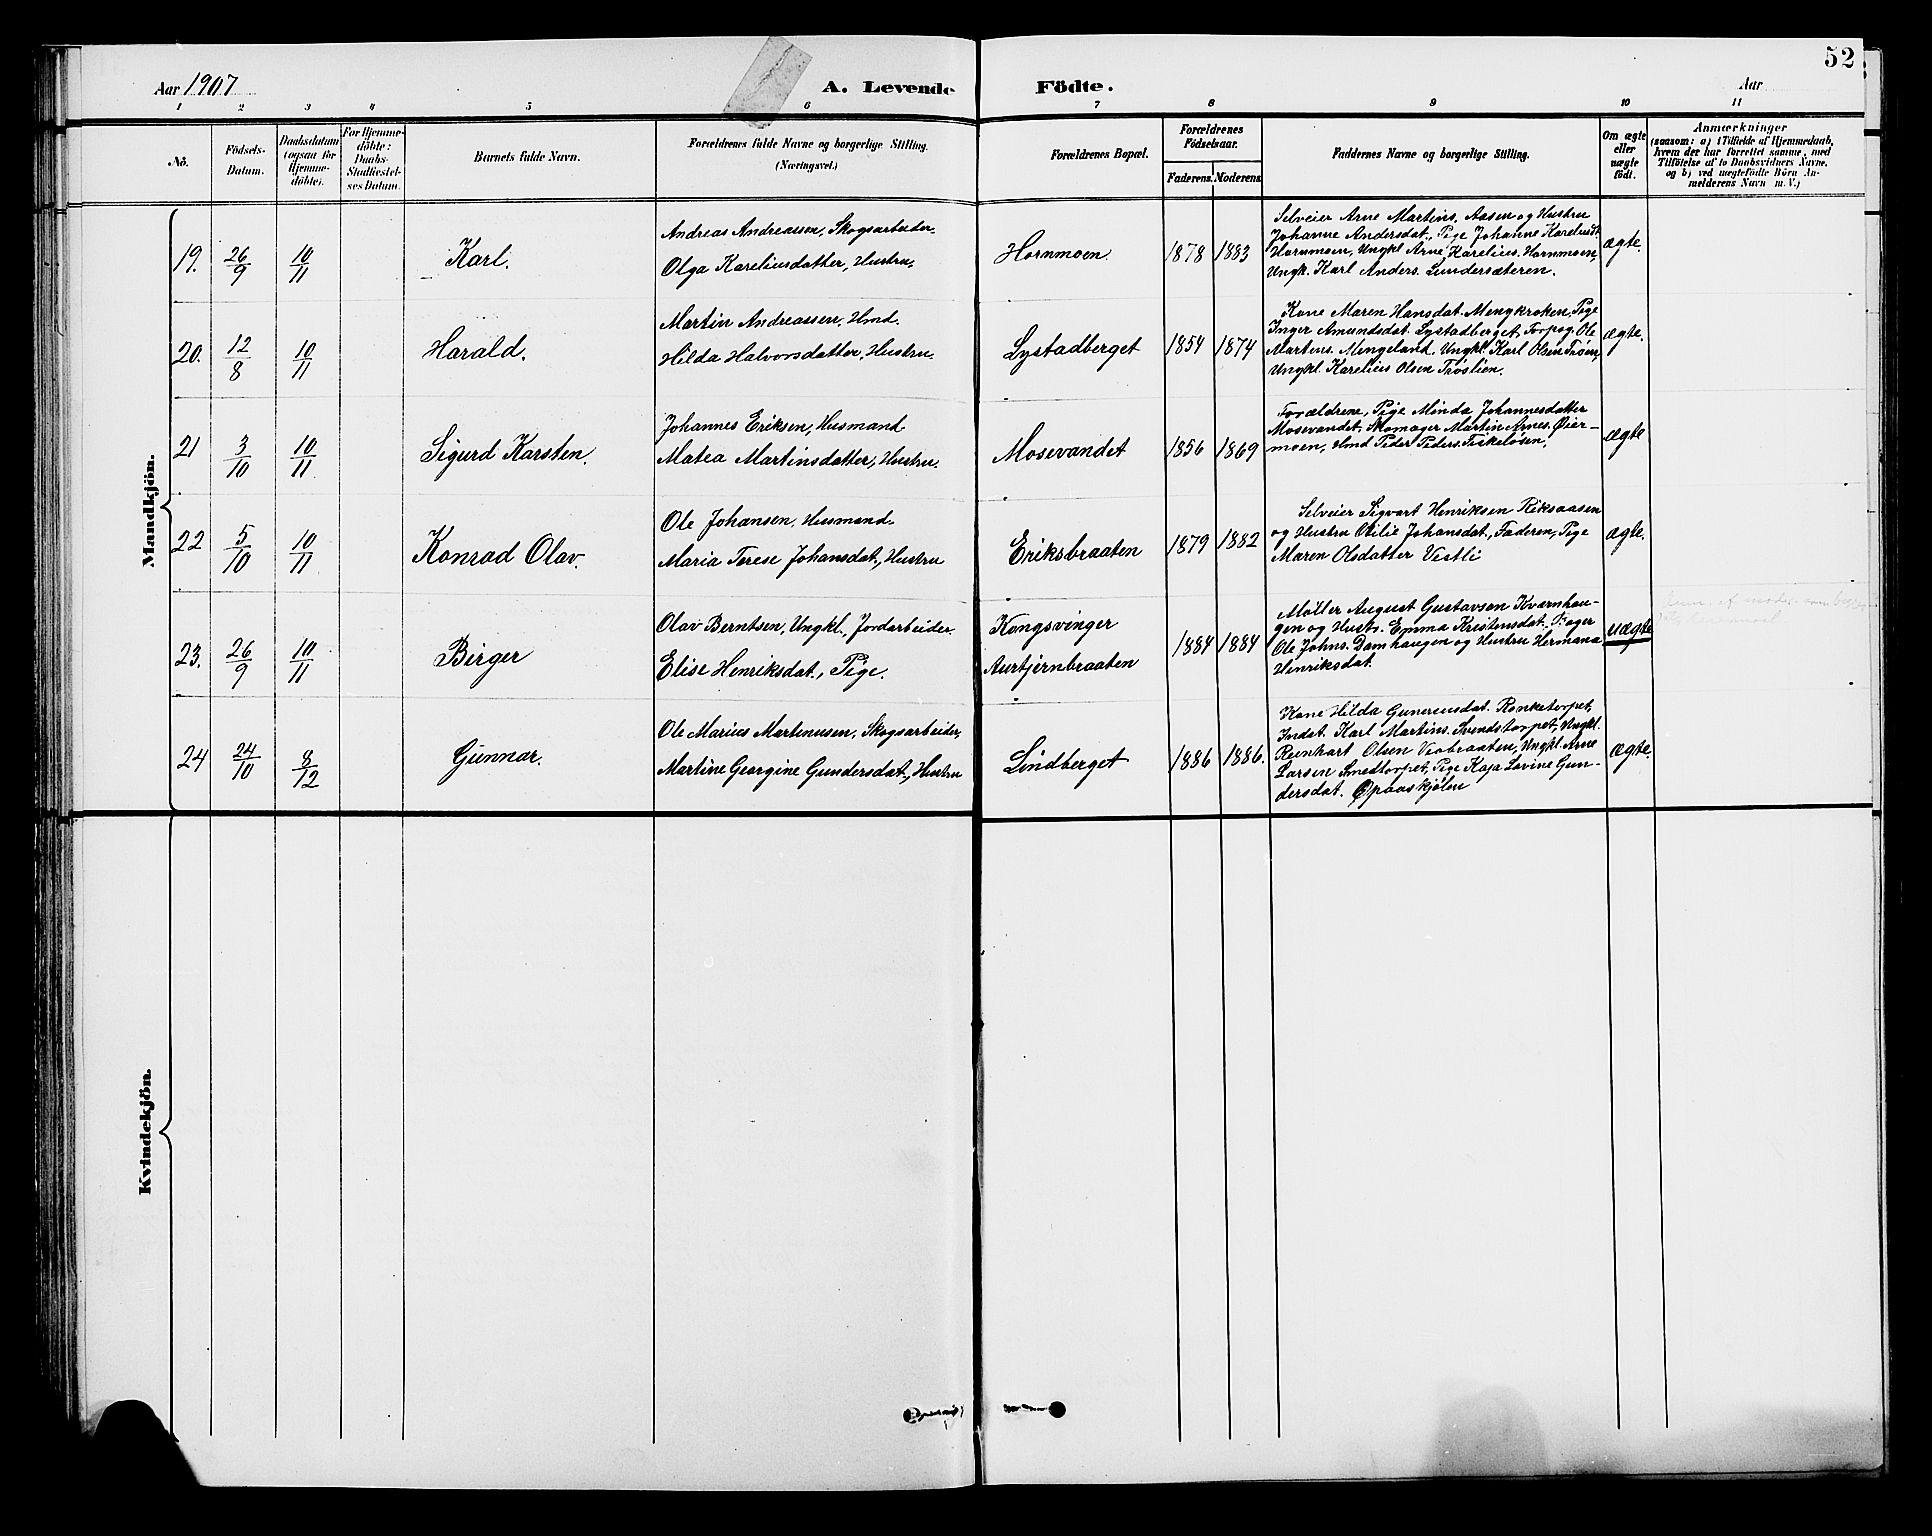 52
Aar 1907
A. Levende Födte.
Aar
1 2 3 4 5 6 7 8 9 10 11
No.
Födsels-
Datum.
Daabsdatum
(ogsaa for
Hjemme-
döbte).
For Hjemme-
döbte:
Daabs-
Stadfæstel-
ses Datum.
Barnets fulde Navn.
Forældrenes fulde Navne og borgerlige Stilling.
(Næringsvei.)
Forældrenes Bopæl.
Forældrenes
Födselsaar.
Faderens. Moderens.
Faddernes Navne og borgerlige Stilling.
Om ægte
eller
uægte
födt.
Anmærkninger
(saasom: a) i Tilfælde af Hjemmedaab,
hvem der har forrettet samme, med
Tilföielse af to Daabsvidners Navne,
og b) ved uægtefödte Börn An-
melderens Navn m. V.)
Mandkjön.
19. 26/9 10/11 Karl.
Andreas Andreassen, Skogsarbeider.
Olga Kareliusdatter, Hustru.
Hornmoen 1878 1883
Selveier Arne Martins. Aasen og Hustru
Johanne Andersdat., Pige Johanne Kareliusdt
Hornmoen, Ungkl Arne Karelius. Hornmoen,
Ungk. Karl Anders. Lundersæteren.
ægte.
20. 12/8 10/11 Harald.
Martin Andreassen, Hmd.
Hilda Halvorsdatter, Hustru.
Lystadberget 1854 1874
Kone Maren Hansdat. Mengkroken, Pige
Inger Amundsdat. Lystadberget, Forpag. Ole
Martens. Mengeland, Ungkl. Karl Olsen Trøen,
Ungkl. Karelius Olsen Trøslien.
ægte.
21 3/10 10/11 Sigurd Karsten.
Johannes Eriksen, Husmand
Matea Martinsdatter, Hustru.
Mosevandet 1856 1869
Forældrene, Pige Minda Johannesdatter
Mosevandet, Skomager Martin Arnes. Øier-
moen, Hmd Peder Peders. Fiskeløsen,
ægte
22 5/10 10/11 Konrad Olav.
Ole Johansen, Husmand.
Maria Terese Johansdat., Hustru
Eriksbraaten 1879 1882
Selveier Sigvart Henriksen Riksaasen
og Hustru Otilie Johansdat., Faderen, Pige
Maren Olsdatter Vestli
ægte.
23. 26/9 10/11 Birger
Olav Berntsen, Ungkl., Jordarbeider.
Elise Henriksdat., Pige.
Kongsvinger
Aurtjernbraaten
1884 1884
Møller August Gustavsen Kværnhau-
gen og Hustr. Emma Kristensdat.
Ole Johns. Damhaugen og Hustru Hermana
Henriksdat.
uægte
24 24/10 8/12 Gunnar.
Ole Marius Martinusen, Skogsarbeider,
Martine Georgine Gundersdat., Hustru
Lindberget 1886 1886.
Kone Hilda Gunerusdat. Ronketorpet,
Indst. Karl Martins. Svendstorpet, Ungkl.
Reinhart Olsen Viobraaten, Ungkl. Arne
Larsen Smedtorpet, Pige Kaja Lovine Gun-
dersdat. Øpaaskjølen
ægte.
Kvindekjön.